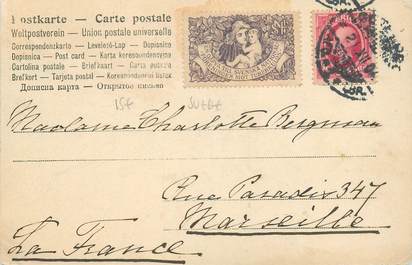 Postkarte – Carte postale
Weltpostverein – Union postale universelle
Correspondenzkarte – Levelező-Lap – Dopisnice
Dopisnica – Post card – Karta korespondencyjna
Cartolina postale – Briefkaart – Carte postale
Brefkort – Tarjeta postal – Korrespondenzkarte
Дописна карта – Открытое письмо
15F SUEDE
Madame Charlotte Bergman
Rue Paradis 347
Marseille
La France